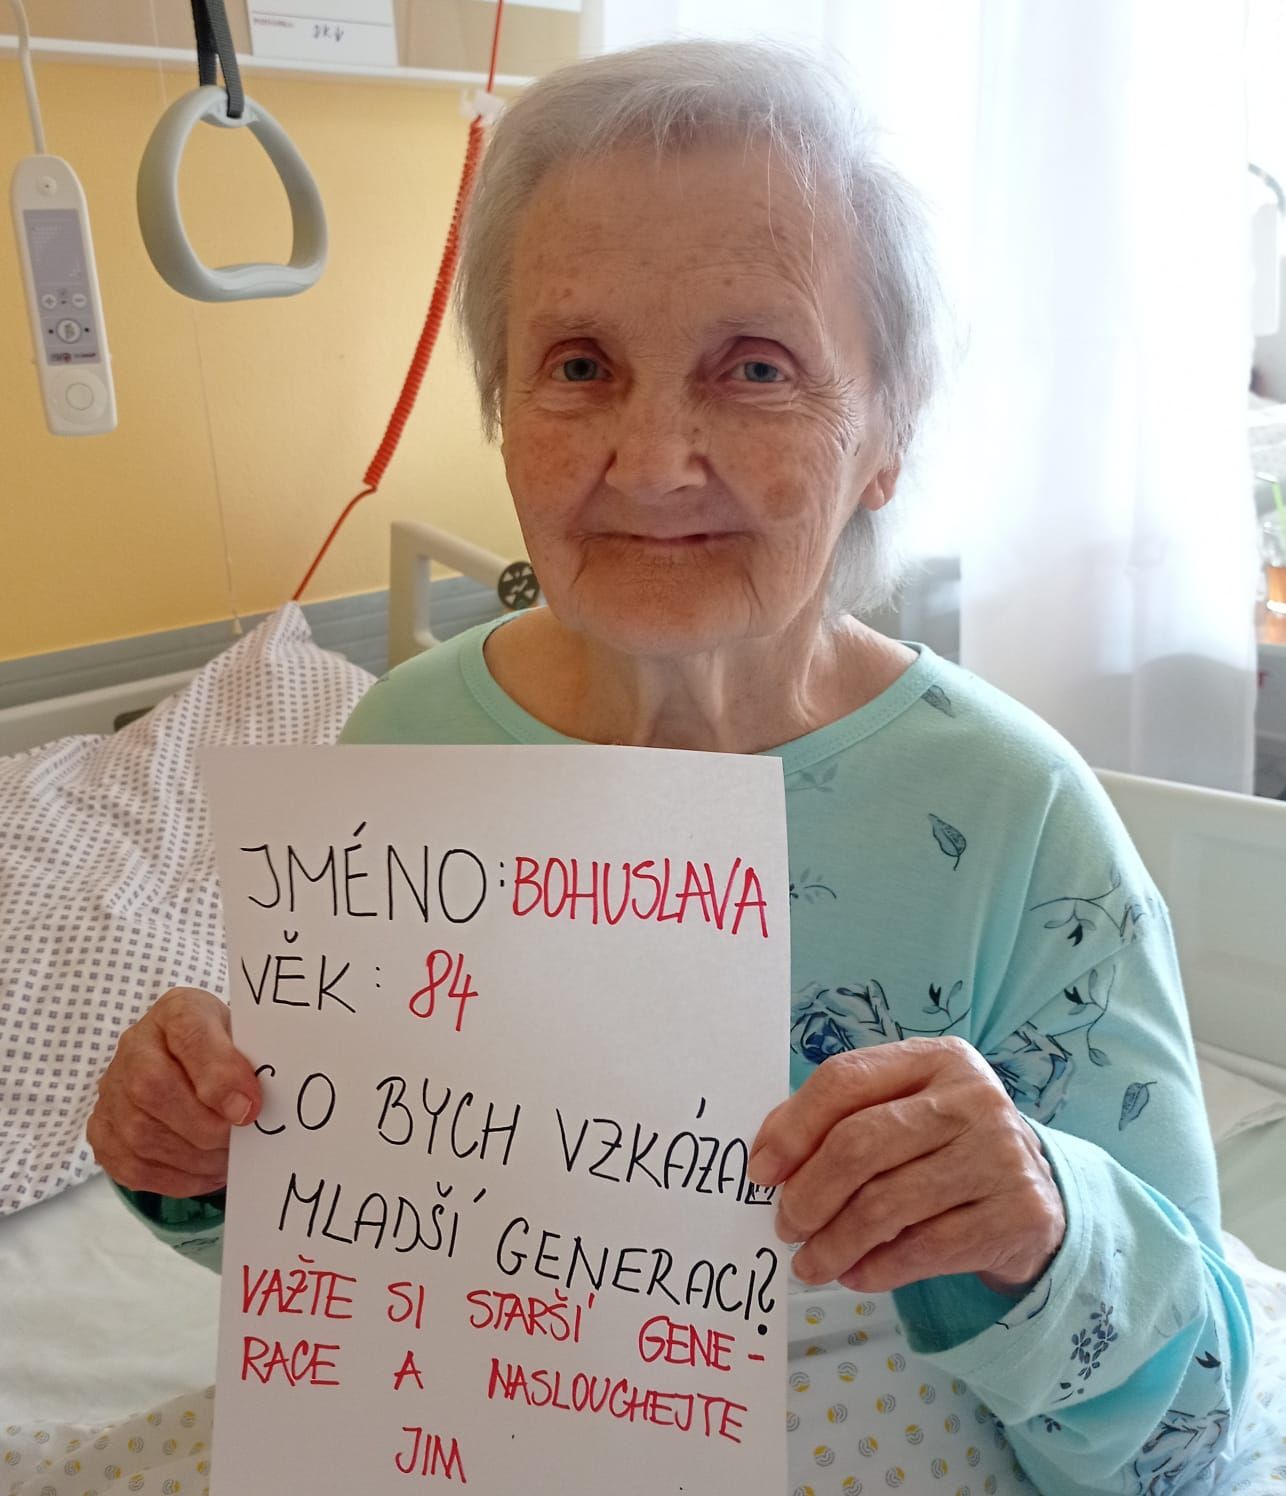 JMÉNO: BOHUSLAVA
VĚK: 84
CO BYCH VZKÁZALA
MLADŠÍ GENERACI?
VAŽTE SI STARŠÍ GENE-
RACE A NASLOUCHEJTE
JIM